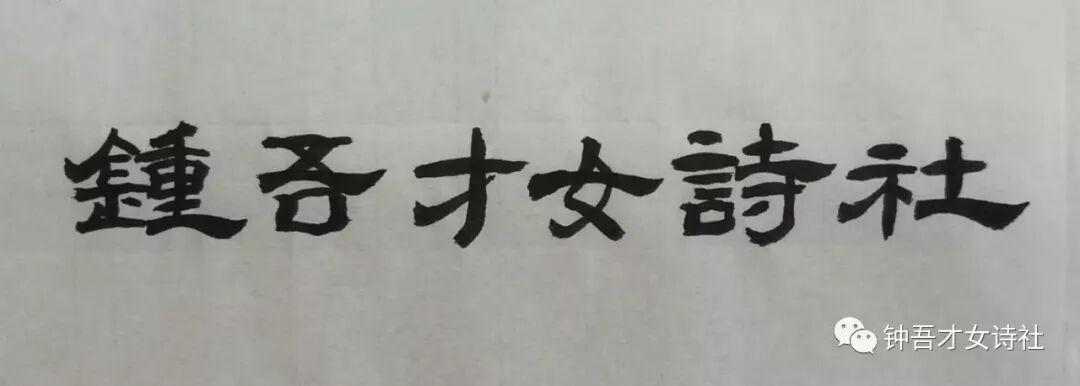 鍾吾才女詩社
钟吾才女诗社